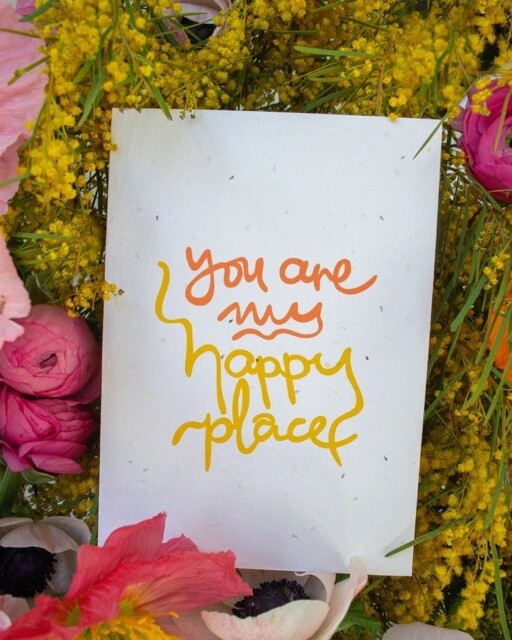 you are
my
happy
place